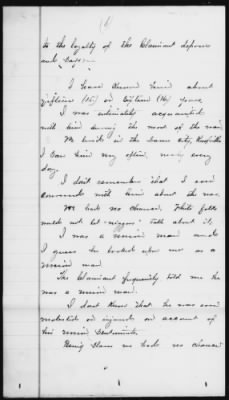 (6)
to the loyalty of the Claimant deposes
and says
I have known him about
fifteen (15) or Sixteen (16) years,
I was intimately acquainted
with him during the most of the war
We lived in the same city,
I saw him very often, nearly every
day.
I don't remember that I ever
conversed with him about the war.
We had no chance. White folks
would not let "niggers" talk about it.
I was a union man and
I guess he looked upon me as a
union man.
The Claimant frequently told me he
was a union man.
I dont know that he was ever
molested or injured on account of
his union Sentiments.
Being Slaves we had no chance